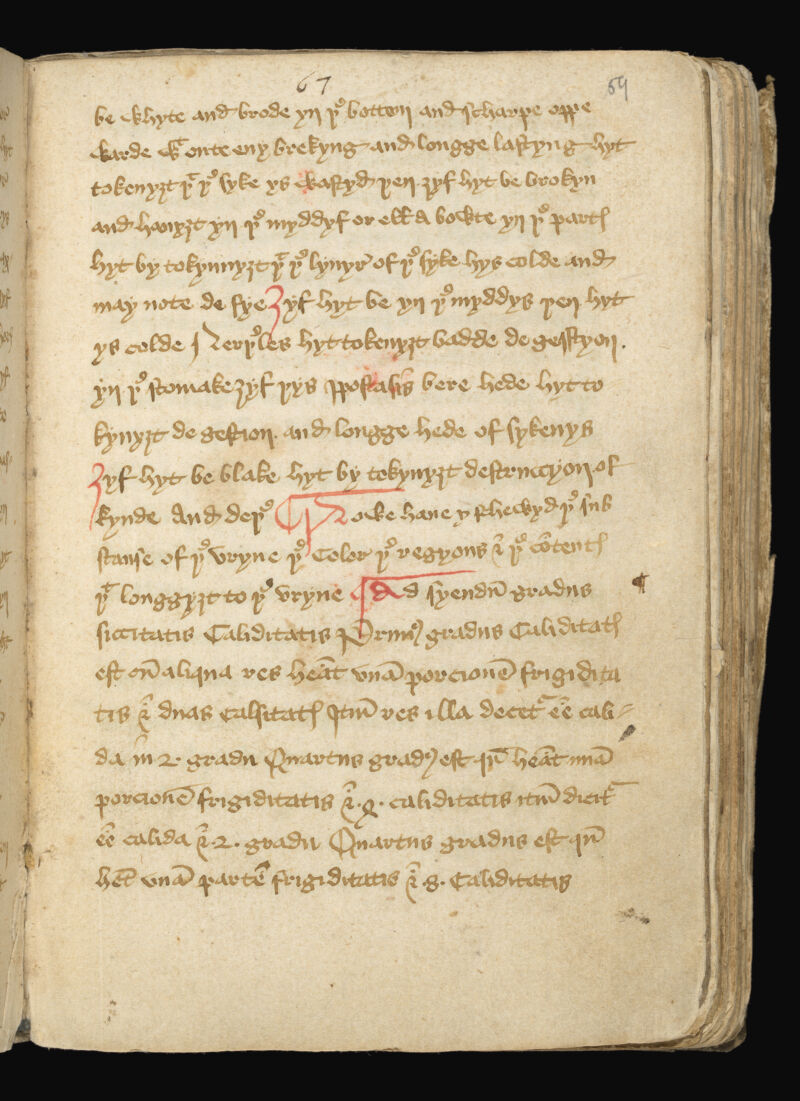 67 59
be Whyte and brode yn þe botton and scharpe oppe
Warde Wt onte eny brekyng and longge lastyng hyt
tokenyȝt þt þe syke ys Wastyd þen ȝyf hyt be brokyn
and hangyt yn þe myddyf or ell a bowte yn þe part
hyt by tokynnyȝt þt þe lyuyr of þe syke hys colde and
may note de fye Ȝyf hyt be yn þe myddys þen hyt
ys colde hyt tokenyȝt badde de gestyon.
yn þe stomake ȝyf þys ypostasis bere hede hyt to
kynyȝt de gestion. and longge hede of sykenys
Ȝyf hyt be blake hyt by tokynyȝt destruccyon of
kynde And deþe ¶ Nowe haue y schewyd þe sub
stanse of þe vryne þe Color þe regyons & þe cōtent
þt longgyȝt to þe vryne ¶ Ad syendū gradus
siccitatis Caliditatis Primus gradus Caliditat
est cū aliqua res heāt vnā porcionē frigidita
tis & duas calsitat Itm res illa decet ēe cali
da in 2. gradu Quartus gradus est qn heāt unā
porcionē frigiditatis & .8. caliditatis itm dicit
ēe calida & 2. gradu Quartus gradus est qn
het vnā partē frigiditatis & .8. Caliditatis